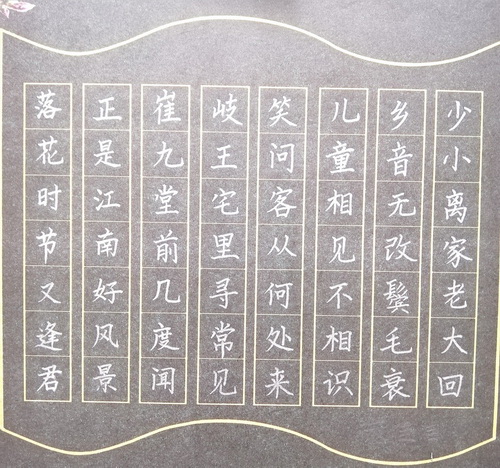 少小离家老大回
乡音无改鬓毛衰
儿童相见不相识
笑问客从何处来
岐王宅里寻常见
崔九堂前几度闻
正是江南好风景
落花时节又逢君